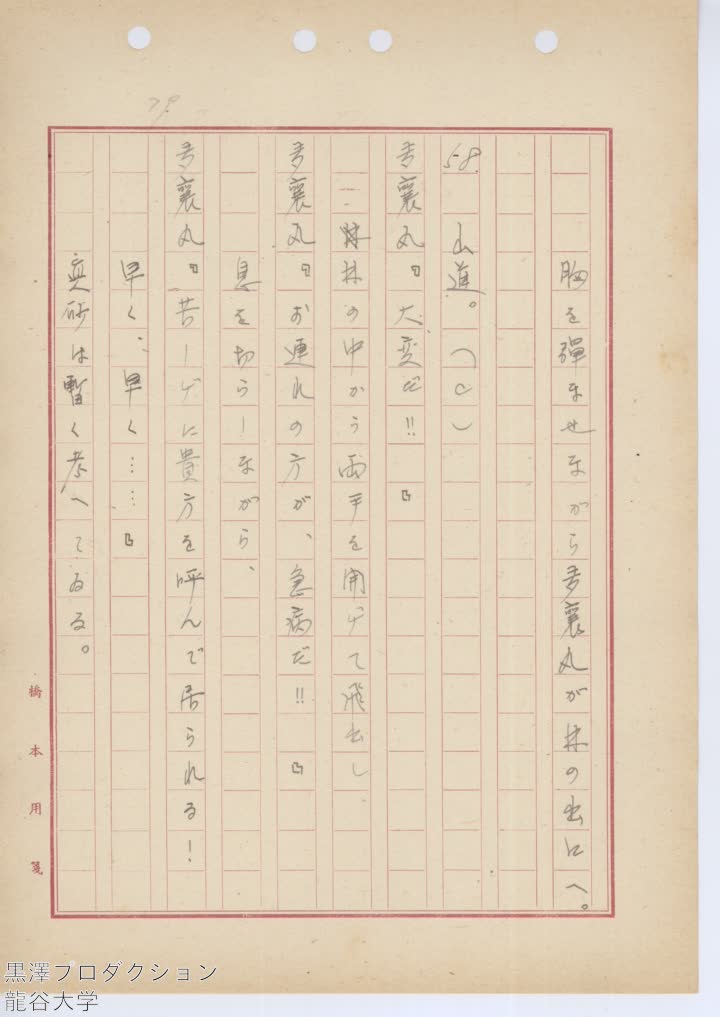 79
胸を彈ませながら多襄丸が林の出口へ。
58 山道。(C)
多襄丸『大変だ!!』
林の中から両手を開げて飛出し
多襄丸『お連れの方が、急病だ!!』
息を切らしながら、
多襄丸『苦しげに貴方を呼んで居られる!
早く、早く……』
真砂は暫く考へてゐる。
橋本用箋
黒澤プロダクション
龍谷大学